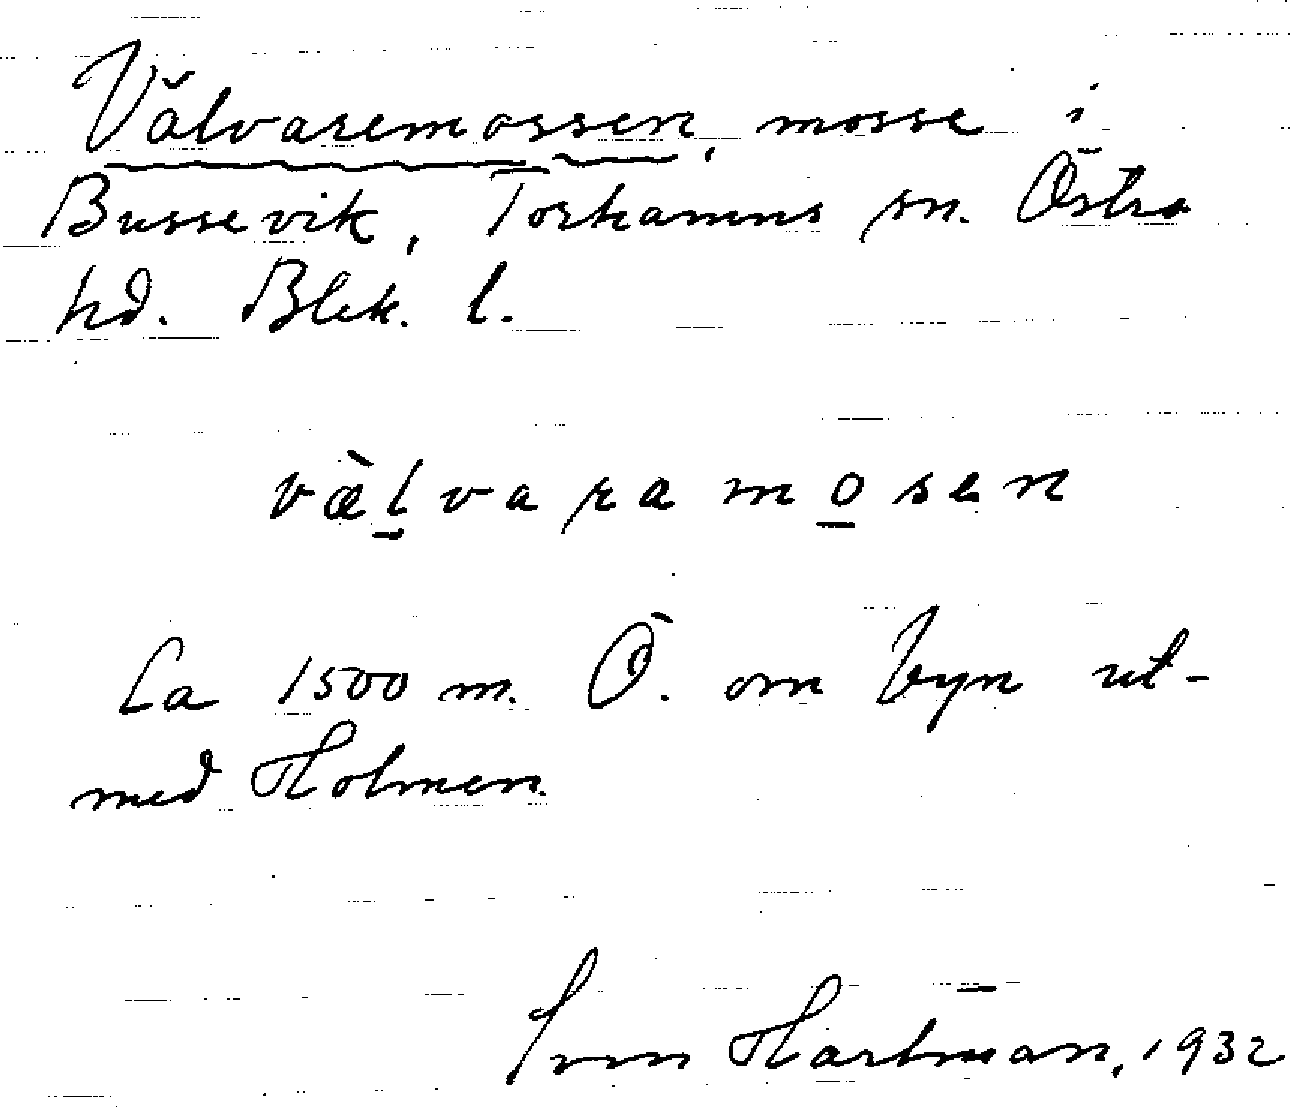 Välvaremossen, mosse i
Bussevik, Torhamns sn. Östra
hd. Blek. l.
væ̀l̠varamo̠sen
Ca 1500 m. Ö. om byn ut-
med Holmen.
Sven Hartman, 1932